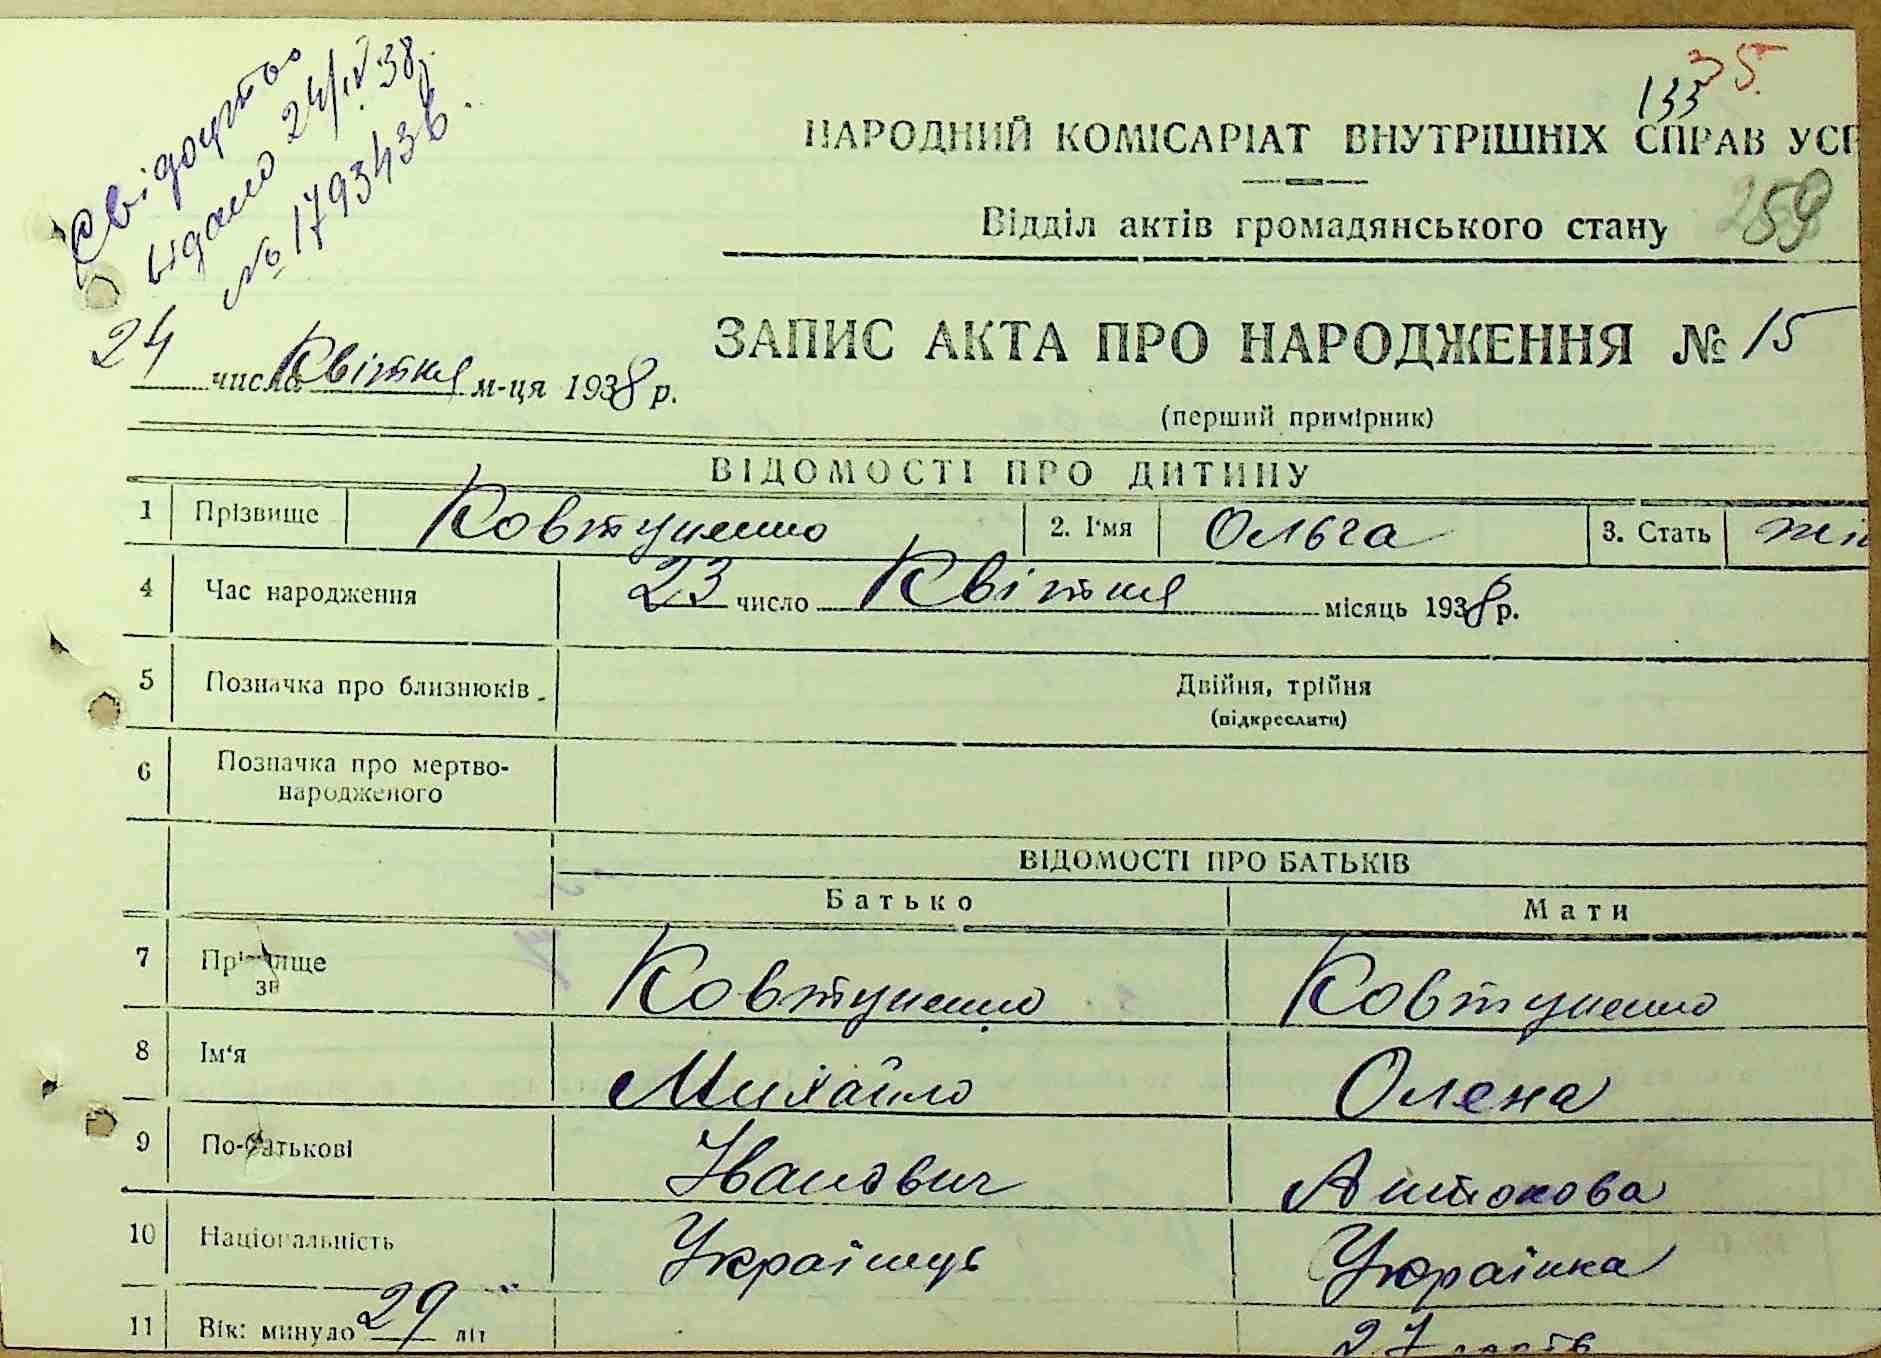 Свідоцтво
видано 24/IV.38р.
№ 1793436.
35.
133
НАРОДНИЙ КОМІСАРІАТ ВНУТРІШНІХ СПРАВ УСР
Відділ актів громадянського стану
259
ЗАПИС АКТА ПРО НАРОДЖЕННЯ № 15
24 числа Квітня м-ця 1938 р.
(перший примірник)
ВІДОМОСТІ ПРО ДИТИНУ
1 Прізвище Ковтуненко 2. І'мя Ольга 3. Стать жін
4 Час народження 23 число Квітня місяць 1938 р.
5 Позначка про близнюків Двійня, трійня
(підкреслити)
6 Позначка про мертво-
народженого
ВІДОМОСТІ ПРО БАТЬКІВ
Батько Мати
7 Прізвище Ковтуненко Ковтуненко
8 Ім'я Михайло Олена
9 По-батькові Іванович Антонова
10 Національність Українець Українка
11 Вік: минуло 29 літ 27